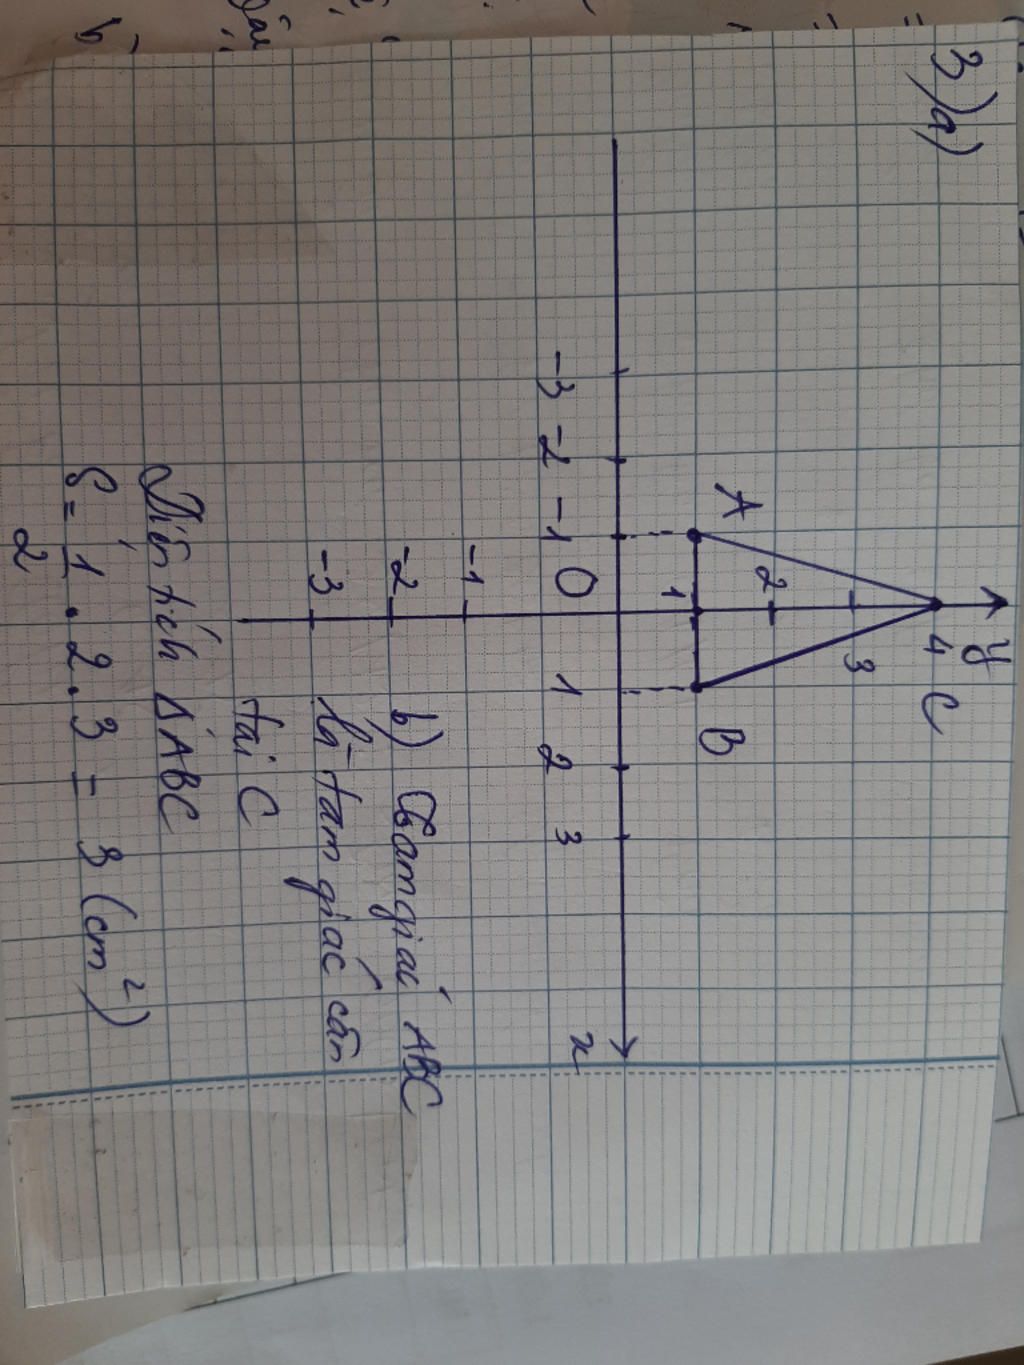 3) a)
y
4 C
3
2
A 1 B
-3 -2 -1 O 1 2 3 x
-1
-2
-3
b) Tam giác ABC
là tam giác cân
tại C
Diện tích ΔABC
S = 1/2 . 2 . 3 = 3 (cm²)